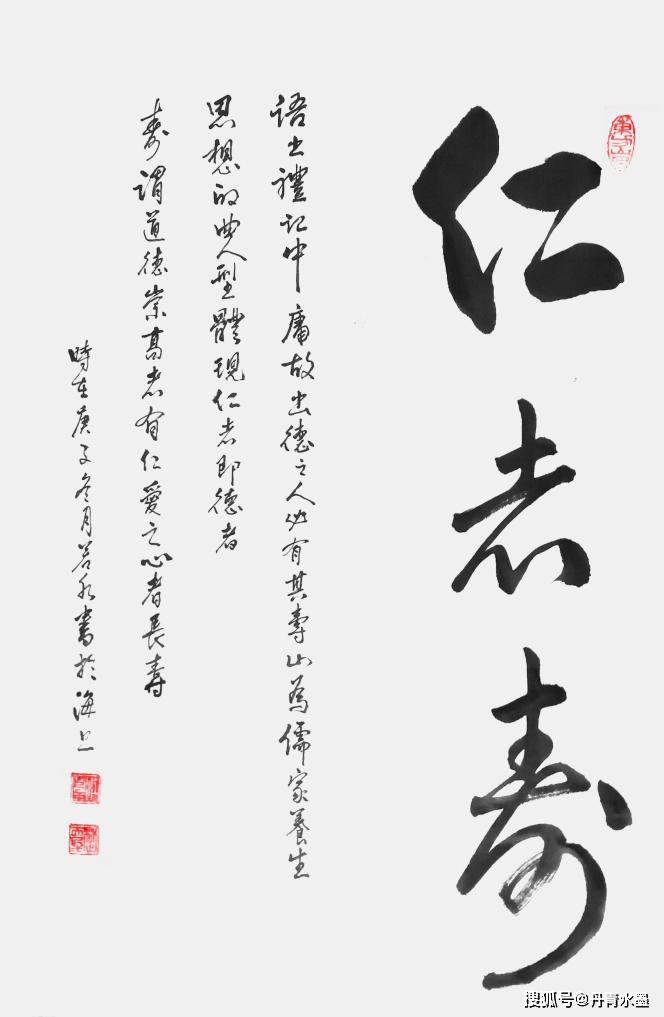 仁者寿
语出禮记中庸故出德之人必有其壽此為儒家養生
思想的典型體現仁者即德者
寿謂道德崇高者有仁愛之心者長壽
時在庚子冬月若水書於海上
搜狐号@丹青水墨